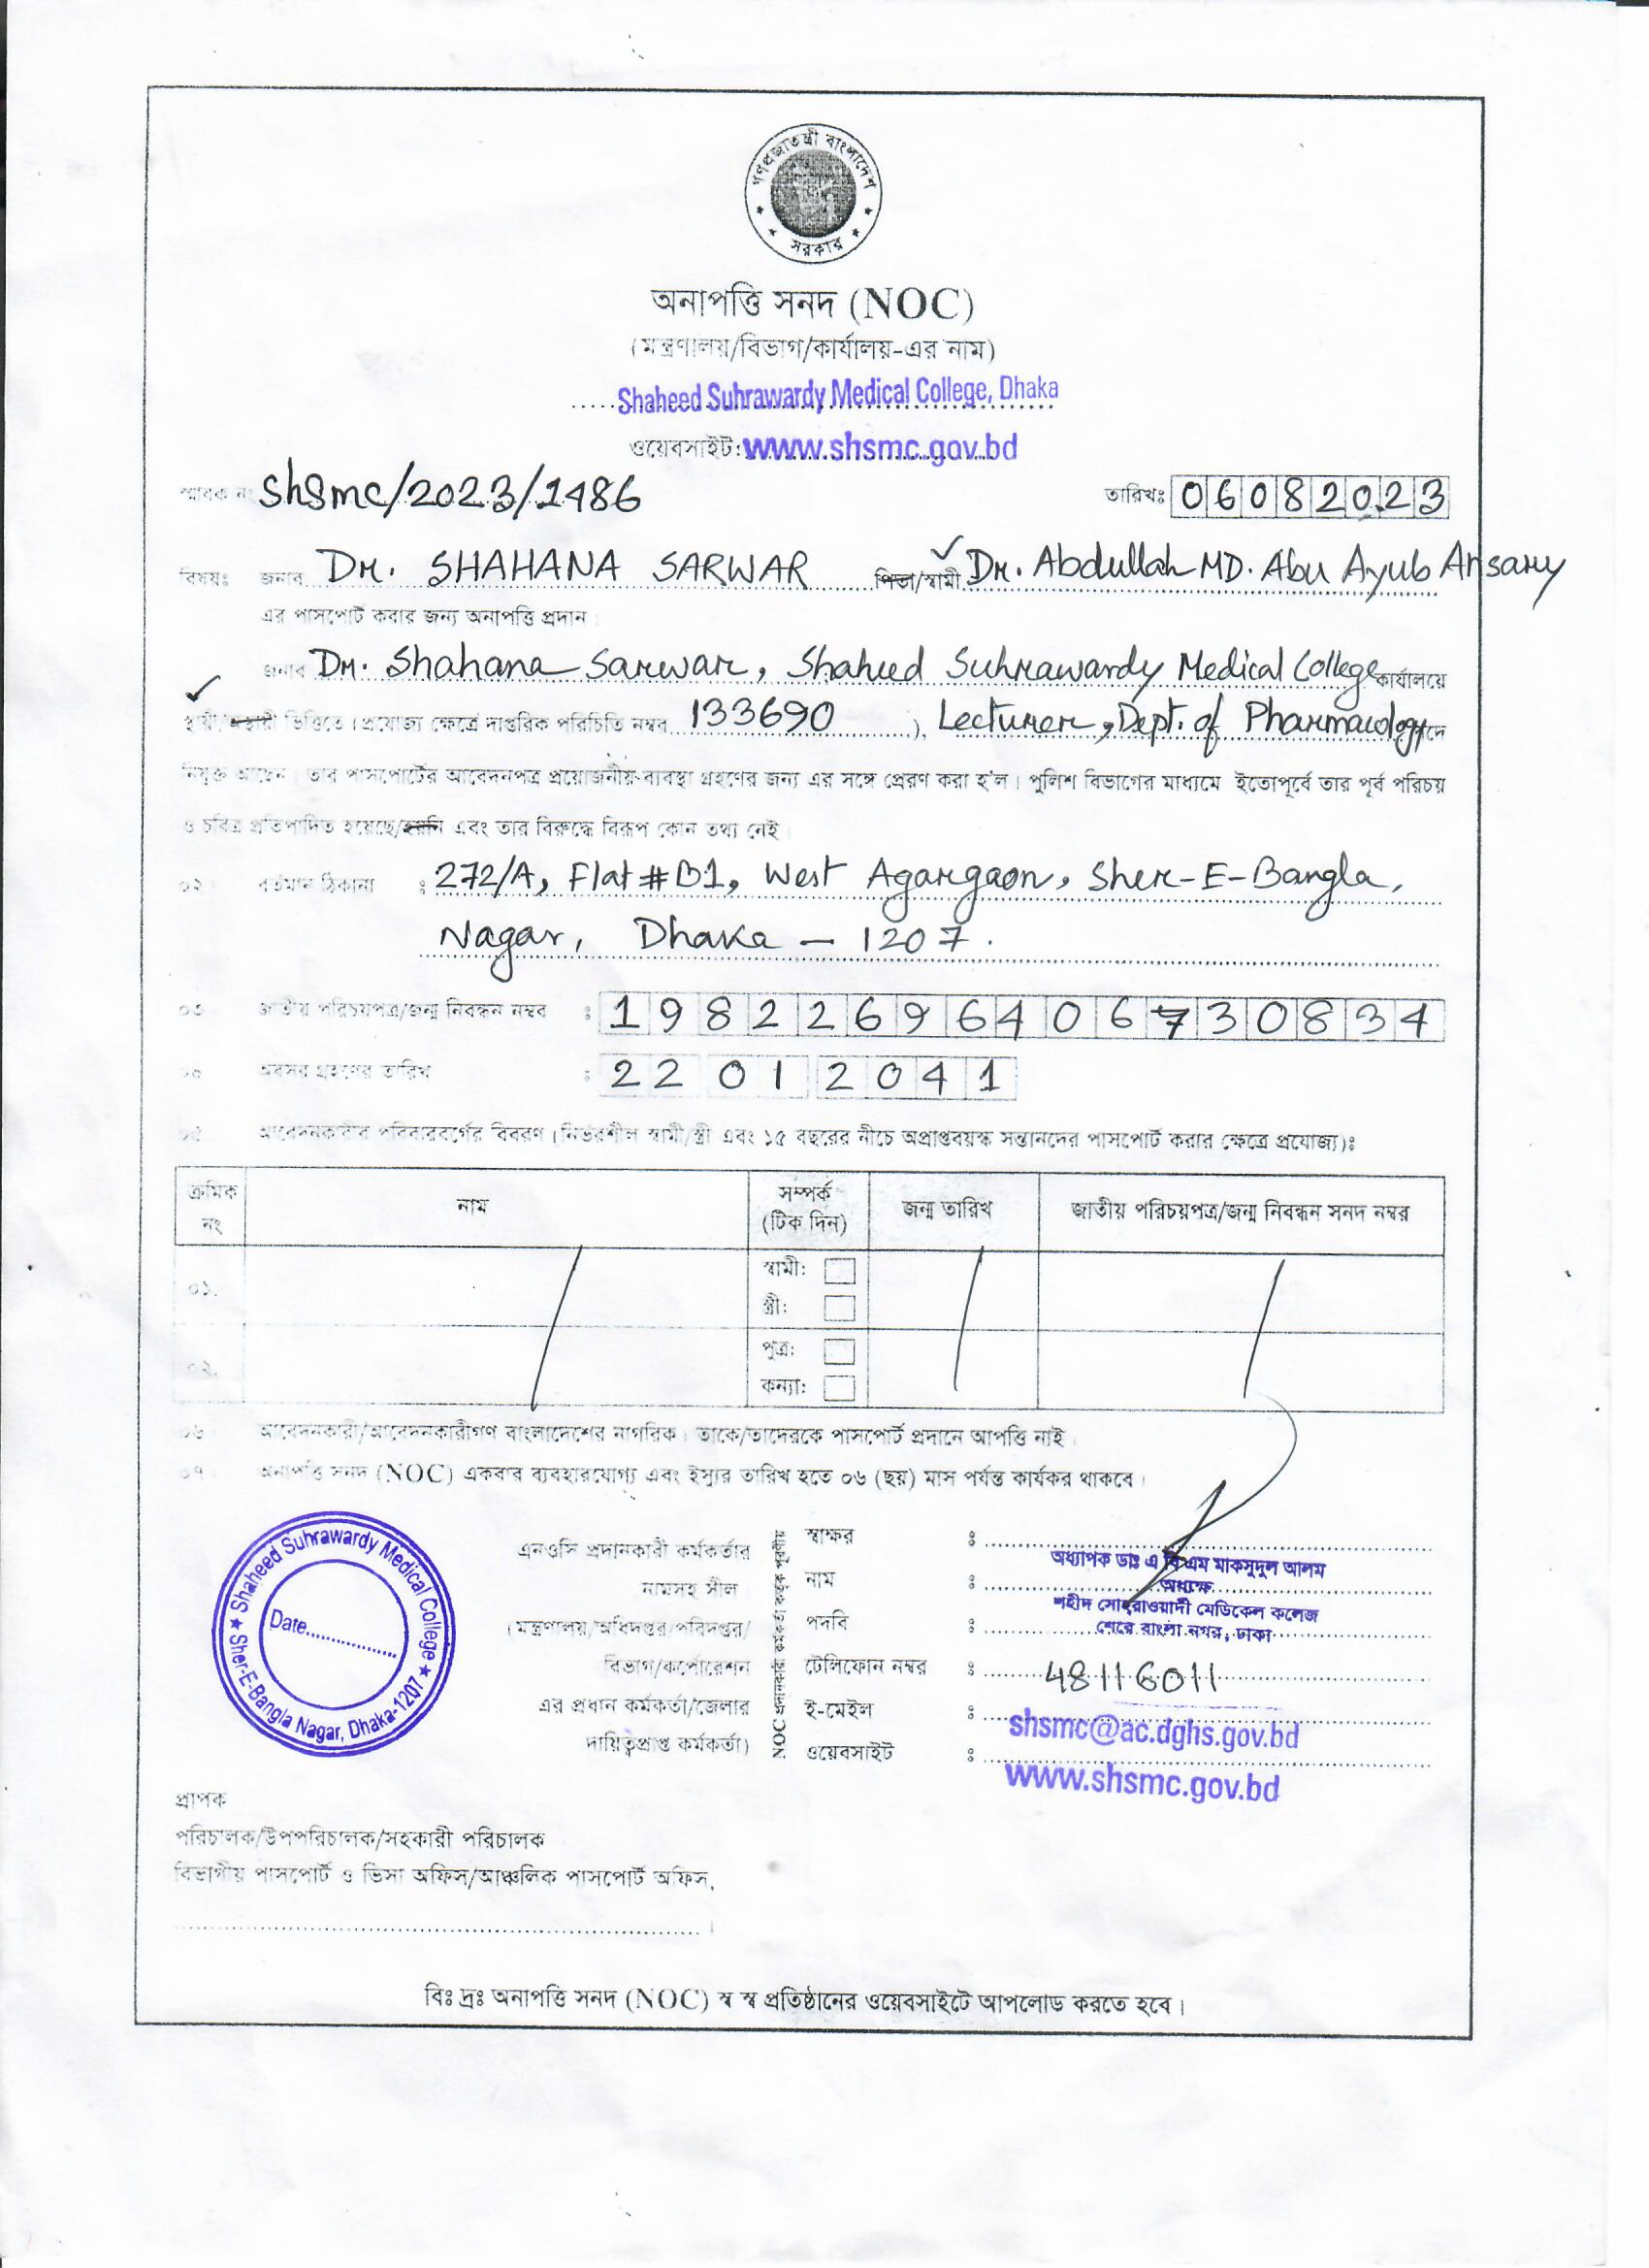 গণপ্রজাতন্ত্রী বাংলাদেশ
সরকার
অনাপত্তি সনদ (NOC)
(মন্ত্রণালয়/বিভাগ/কার্যালয়-এর নাম)
Shaheed Suhrawardy Medical College, Dhaka
ওয়েবসাইট: www.shsmc.gov.bd
স্মারক নং shsmc/2023/1486 তারিখঃ 06082023
বিষয়ঃ জনাব Dr. SHAHANA SARWAR পিতা/স্বামী Dr. Abdullah MD. Abu Ayub Ansary
এর পাসপোর্ট করার জন্য অনাপত্তি প্রদান
জনাব Dr. Shahana Sarwar, Shaheed Suhrawardy Medical College কার্যালয়ে
স্থায়ী/অস্থায়ী ভিত্তিতে (প্রযোজ্য ক্ষেত্রে দাপ্তরিক পরিচিতি নম্বর 133690 ), Lecturer, Dept. of Pharmacology পদে
নিযুক্ত আছেন। তার পাসপোর্টের আবেদনপত্র প্রয়োজনীয়-ব্যবস্থা গ্রহণের জন্য এর সঙ্গে প্রেরণ করা হ'ল। পুলিশ বিভাগের মাধ্যমে ইতোপূর্বে তার পূর্ব পরিচয়
ও চরিত্র প্রতিপাদিত হয়েছে/হয়নি এবং তার বিরুদ্ধে বিরূপ কোন তথ্য নেই।
০২ বর্তমান ঠিকানা ঃ 272/A, Flat#B1, West Agargaon, Sher-E-Bangla,
Nagar, Dhaka – 1207.
০৩ জাতীয় পরিচয়পত্র/জন্ম নিবন্ধন নম্বর ঃ 19822696406730834
০৪ অবসর গ্রহণের তারিখ ঃ 22 01 2041
০৫ আবেদনকারীর পরিবারবর্গের বিবরণ (নির্ভরশীল স্বামী/স্ত্রী এবং ১৫ বছরের নীচে অপ্রাপ্তবয়স্ক সন্তানদের পাসপোর্ট করার ক্ষেত্রে প্রযোজ্য)ঃ
ক্রমিক নং নাম সম্পর্ক (টিক দিন) জন্ম তারিখ জাতীয় পরিচয়পত্র/জন্ম নিবন্ধন সনদ নম্বর
০১. স্বামী:
স্ত্রী:
০২. পুত্র:
কন্যা:
০৬ আবেদনকারী/আবেদনকারীগণ বাংলাদেশের নাগরিক। তাকে/তাদেরকে পাসপোর্ট প্রদানে আপত্তি নাই।
০৭ অনাপত্তি সনদ (NOC) একবার ব্যবহারযোগ্য এবং ইস্যুর তারিখ হতে ০৬ (ছয়) মাস পর্যন্ত কার্যকর থাকবে।
Shaheed Suhrawardy Medical College
Date
Sher-E-Bangla Nagar, Dhaka-1207
এনওসি প্রদানকারী কর্মকর্তার
নামসহ সীল
(মন্ত্রণালয়/অধিদপ্তর/পরিদপ্তর/
বিভাগ/কর্পোরেশন
এর প্রধান কর্মকর্তা/জেলার
দায়িত্বপ্রাপ্ত কর্মকর্তা)
NOC প্রদানকারী কর্মকর্তা কর্তৃক পূরণীয়
স্বাক্ষর ঃ
নাম ঃ অধ্যাপক ডাঃ এ বি এম মাকসুদুল আলম
অধ্যক্ষ
পদবি ঃ শহীদ সোহরাওয়ার্দী মেডিকেল কলেজ
শেরে বাংলা নগর, ঢাকা
টেলিফোন নম্বর ঃ 48116011
ই-মেইল ঃ shsmc@ac.dghs.gov.bd
ওয়েবসাইট ঃ www.shsmc.gov.bd
প্রাপক
পরিচালক/উপপরিচালক/সহকারী পরিচালক
বিভাগীয় পাসপোর্ট ও ভিসা অফিস/আঞ্চলিক পাসপোর্ট অফিস,
বিঃ দ্রঃ অনাপত্তি সনদ (NOC) স্ব স্ব প্রতিষ্ঠানের ওয়েবসাইটে আপলোড করতে হবে।